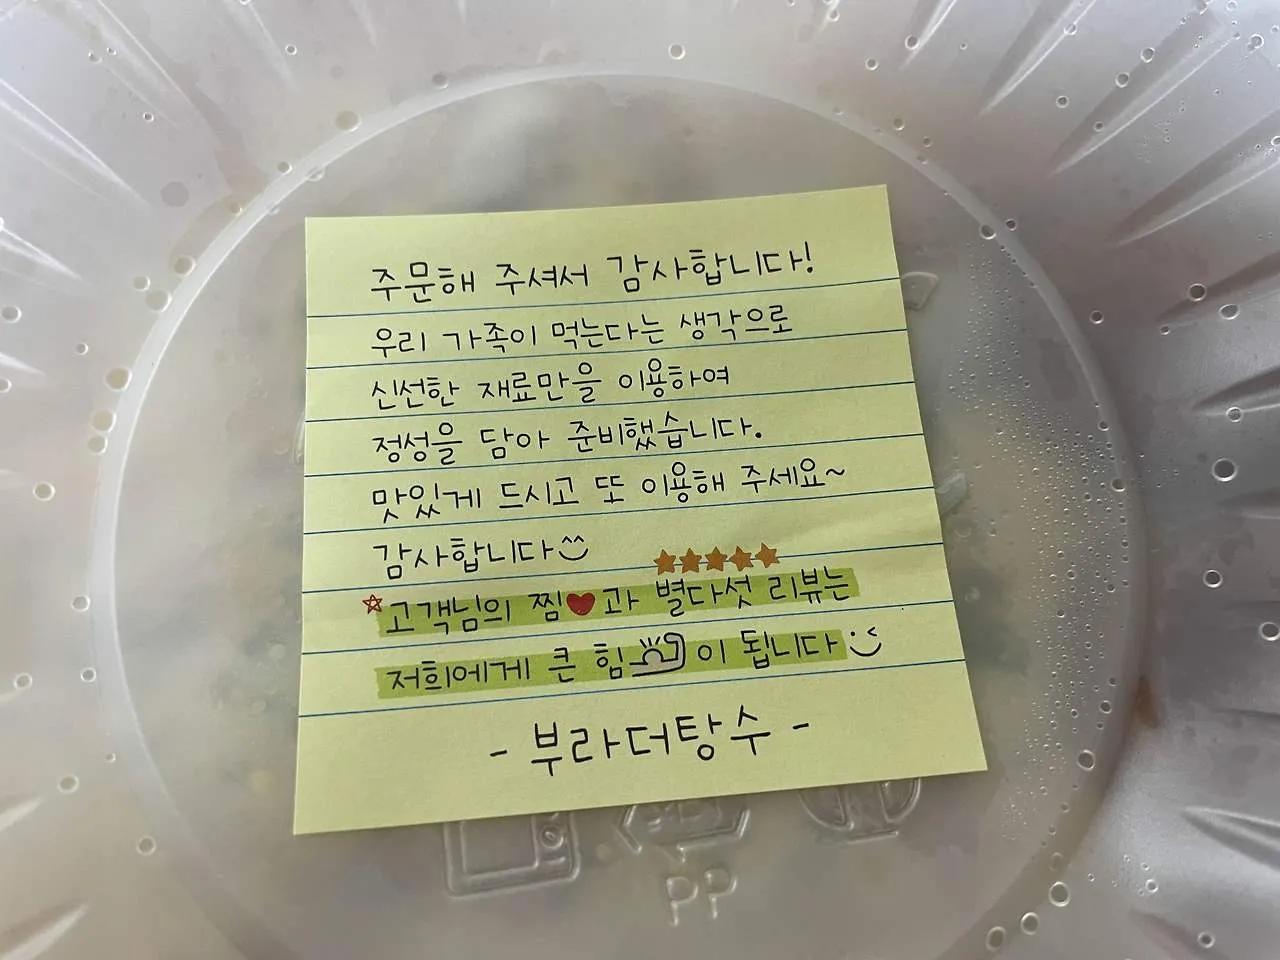 주문해 주셔서 감사합니다!
우리 가족이 먹는다는 생각으로
신선한 재료만을 이용하여
정성을 담아 준비했습니다.
맛있게 드시고 또 이용해 주세요~
감사합니다^^
★★★★★
☆고객님의 찜♥과 별다섯 리뷰는
저희에게 큰 힘💪이 됩니다
- 부라더탕수 -
PP